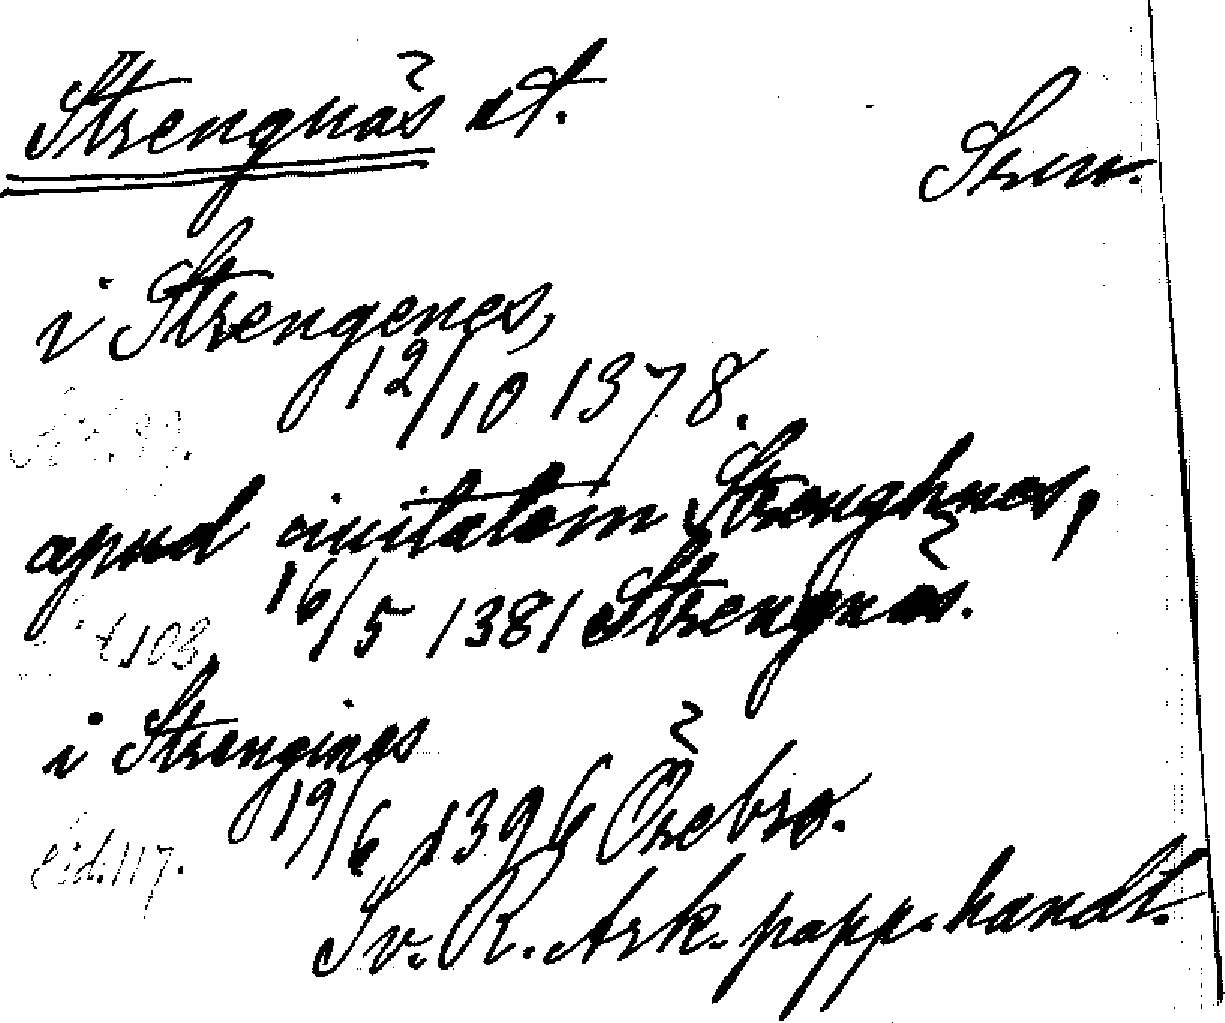 Strengnäs st.
i Strengenes,
12/10 1378.
apud ciuitatem Strenghnes,
16/5 1381 Strengnäs.
t 103
i Strengines
19/6 1396 Örebro.
117.
Sv. R. Ark. papp. handl.